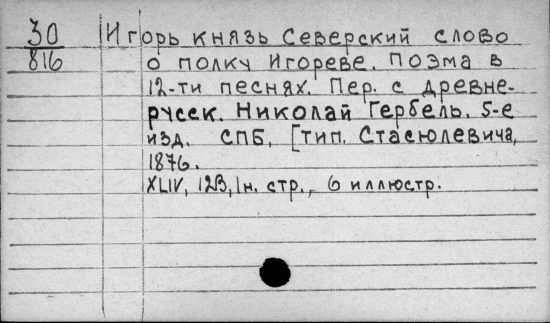 30 Игорь князь Северский слово
816 о полку Игореве. Поэма в
12-ти песнях. Пер. с древне-
русск. Николай Гербель. 5-е
изд. СПБ, [тип. Стасюлевича,
1876.
XLIV, 123, 1н. стр., 6 иллюстр.